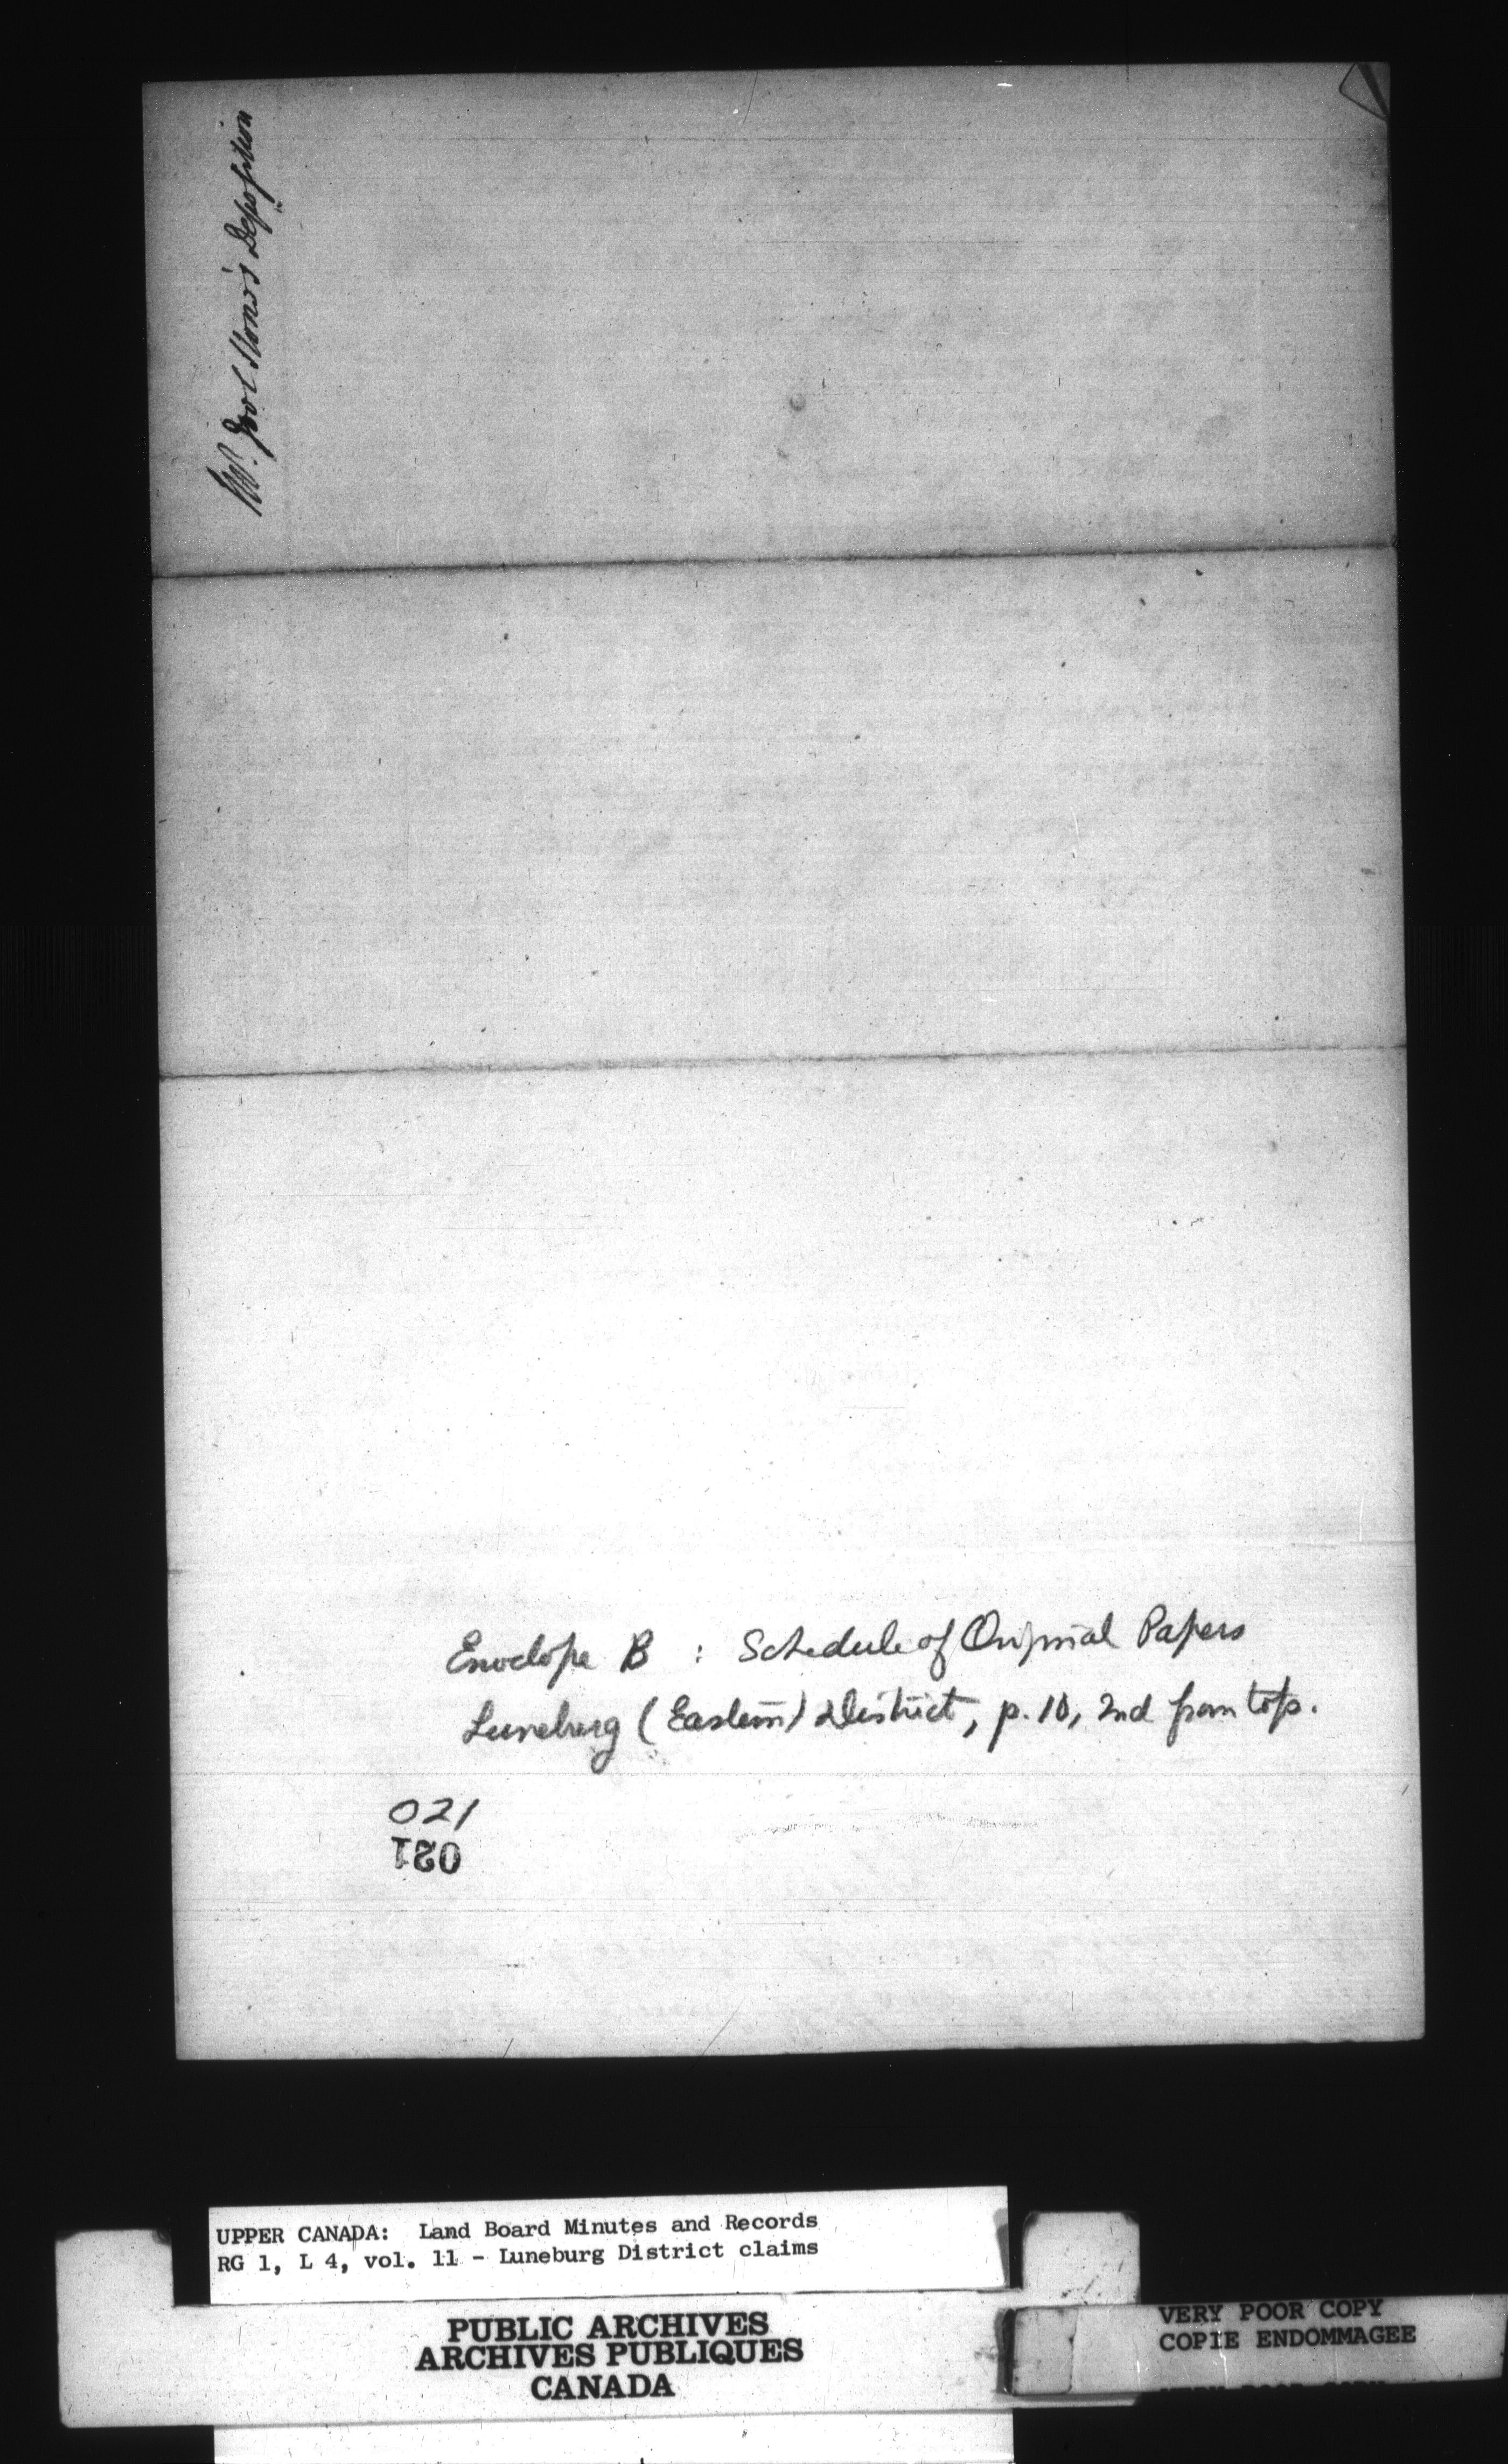 Mr. Joel Stone's Deposition
Envelope B : Schedule of Original Papers
Luneburg (Eastern) District, p. 10, 2nd from top.
021
021
UPPER CANADA: Land Board Minutes and Records
RG 1, L 4, vol. 11 - Luneburg District claims
PUBLIC ARCHIVES
ARCHIVES PUBLIQUES
CANADA
VERY POOR COPY
COPIE ENDOMMAGEE